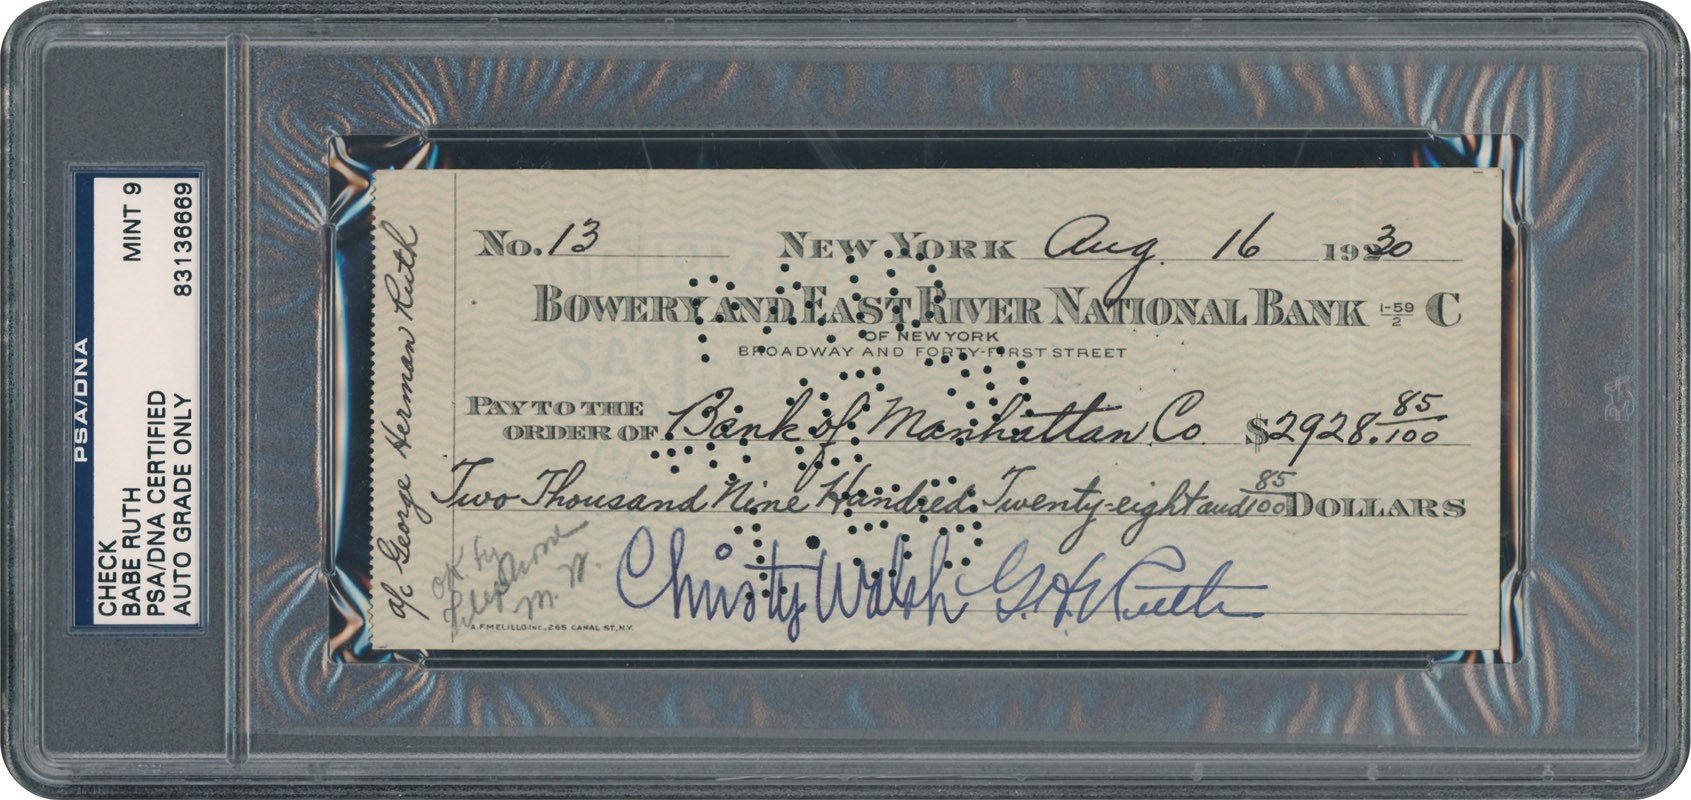 PSA/DNA
CHECK
MINT 9
BABE RUTH
PSA/DNA CERTIFIED
83136669
AUTO GRADE ONLY
a/c George Herman Ruth
No. 13 NEW YORK Aug. 16 1930
BOWERY AND EAST RIVER NATIONAL BANK 1-59/2 C
OF NEW YORK
BROADWAY AND FORTY-FIRST STREET
PAY TO THE
ORDER OF Bank of Manhattan Co. $2928.85/100
Two Thousand Nine Hundred Twenty-eight and 85/100 DOLLARS
OK by
M.
Christy Walsh G. H. Ruth
A.F.MELILLO, INC., 265 CANAL ST., N.Y.